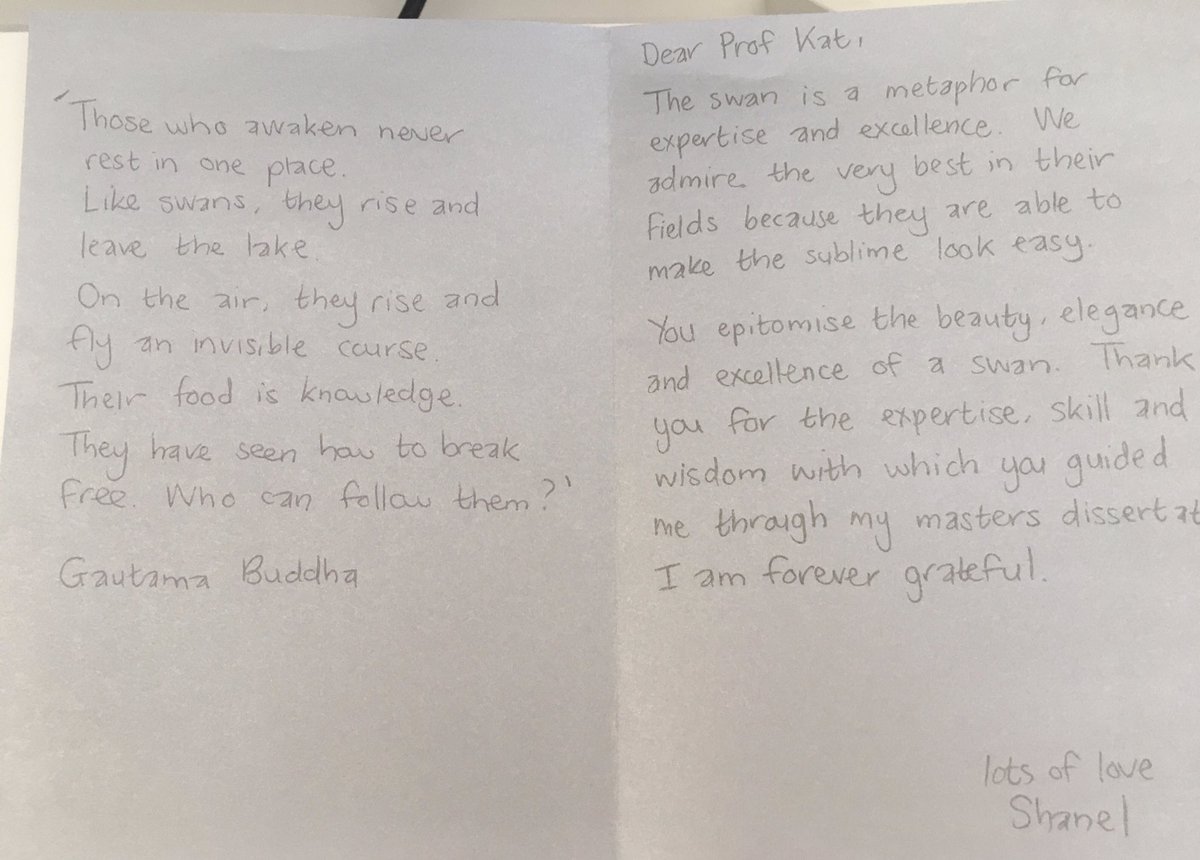 'Those who awaken never
rest in one place.
Like swans, they rise and
leave the lake.
On the air, they rise and
fly an invisible course.
Their food is knowledge.
They have seen how to break
free. Who can follow them?'
Gautama Buddha
Dear Prof Kat,
The swan is a metaphor for
expertise and excellence. We
admire the very best in their
fields because they are able to
make the sublime look easy.
You epitomise the beauty, elegance
and excellence of a swan. Thank
you for the expertise, skill and
wisdom with which you guided
me through my masters dissertat
I am forever grateful.
lots of love
Shanel